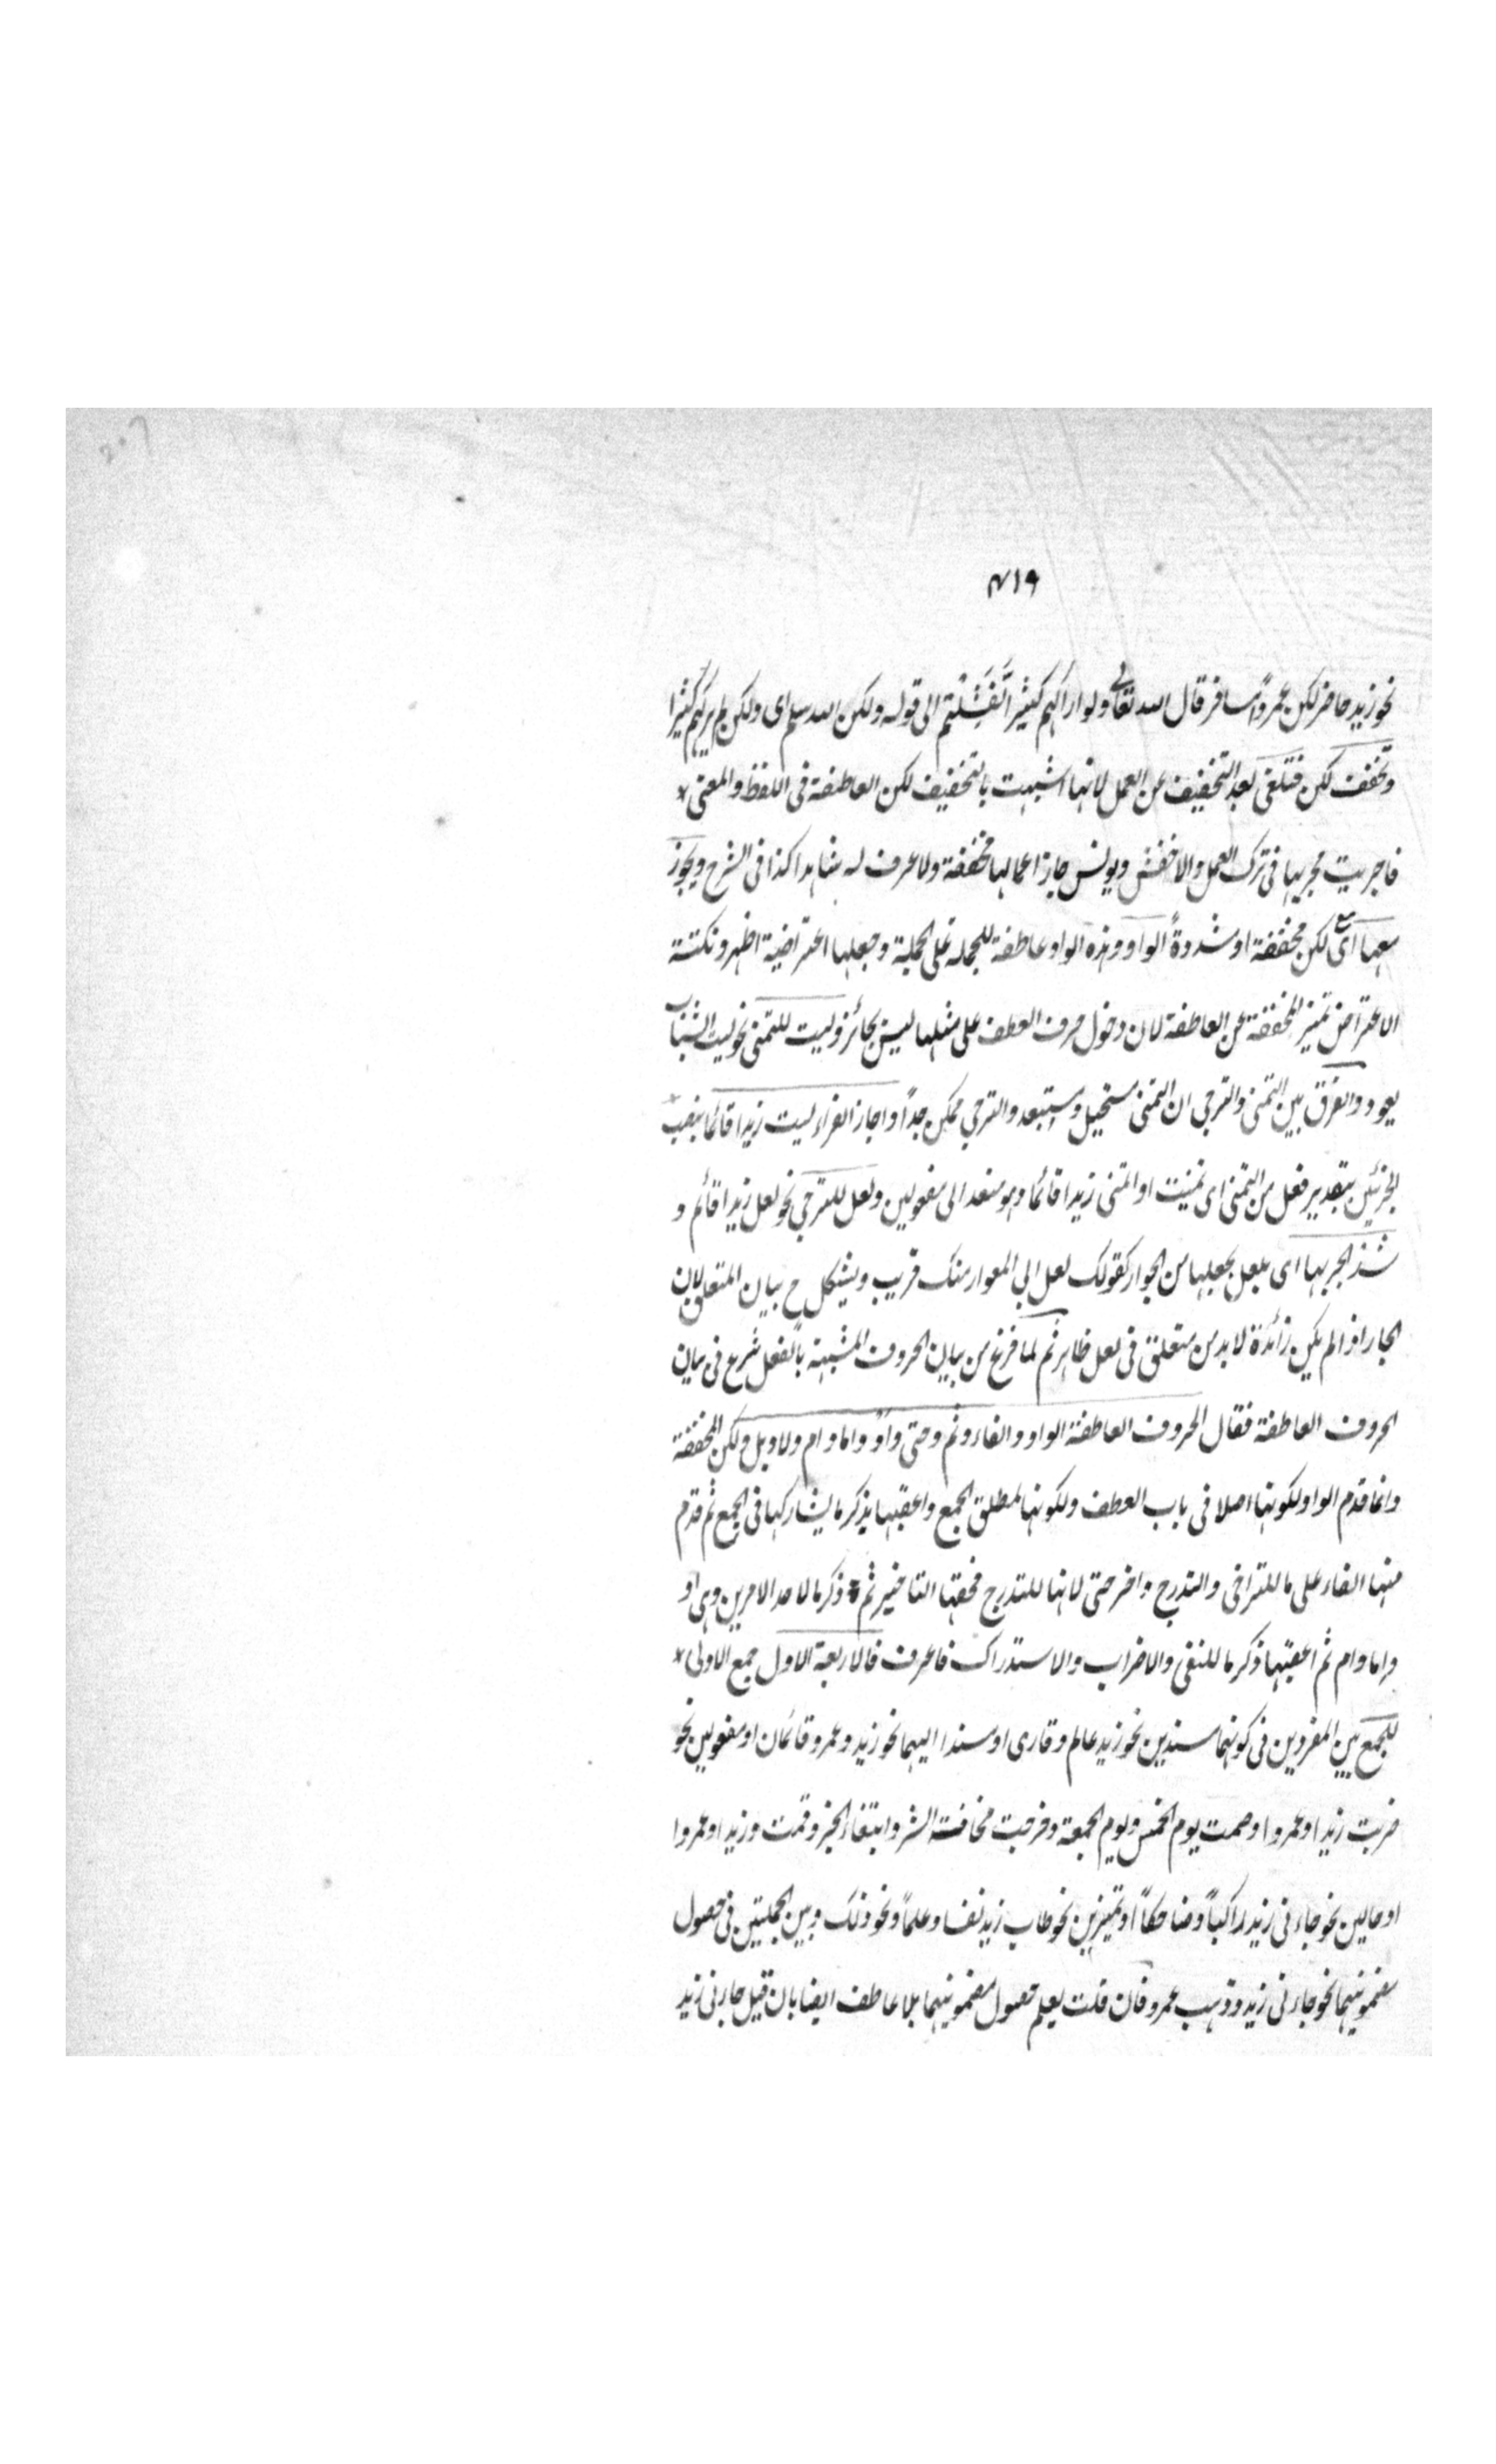 ۴۱۹
نحو زيد حاضر لكن عمرواً مسافر قال الله تعالى ولو اراكهم كثيرا لَّفَشِلْتم الى قوله ولكن الله سلم اى ولكن لم يركهم كثيرا
وتخفف لكن فتلغى بعد التخفيف عن العمل لانها اشبهت بالتخفيف لكن العاطفة فى اللفظ والمعنى *
فاجريت مجريها فى ترك العمل والاخفش ويونس جازا عمالها مخففة ولا عرف له شاهدا كذا فى الشرح ويجوز
معها اى مع لكن مخففة او مشدودةً الواو وهذه الواو عاطفة للجملة على الجملة وجعلها اعتراضية اظهر ونكتة
الاعتراض تميز المخففة عن العاطفة لان دخول حرف العطف على مثلها ليس بجائز وليت للتمنى نحو ليت الشباب
يعود والفرق بين التمنى والترجى ان التمنى مستحيل ومستبعد والترجى ممكن جداً واجاز الفراء ليت زيدا قائما بنصب
الجزئين بتقدير فعل من التمنى اى تمنيت او اتمنى زيدا قائما وهو متعد الى مفعولين ولعل للترجى نحو لعل زيدا قائم و
شذ الجر بها اى بلعل بجعلها من الجوار كقولك لعل ابى المغوار منك قريب ويشكل ح بيان المتعلق لان
الجار اذا لم يكن زائدة لا بد من متعلق فى لعل ظاهر ثم لما فرغ من بيان الحروف المشبهة بالفعل شرع فى بيان
الحروف العاطفة فقال الحروف العاطفة الواو والفاء وثم وحتى واَوْ واما وام ولا وبل ولكن المخففة
وانما قدم الواو لكونها اصلا فى باب العطف ولكونها لمطلق الجمع واعقبها بذكر ما يشاركها فى الجمع ثم قدم
منها الفاء على ما للتراخى والتدرج واخر حتى لانها للتدرج فحقها التاخير ثم ذكر ما لاحد الامرين وهى او
واما وام ثم اعقبها ذكر ما للنفى والاضراب والاستدراك فاعرف فالاربعة الاول جمع الاولى *
للجمع بين المفردين فى كونهما مسندين نحو زيد عالم وقارى او مسندا اليهما نحو زيد وعمرو قائمان او مفعولين نحو
ضربت زيدا وعمروا وصمت يوم الخمس ويوم الجمعة وخرجت مخافة الشر وابتغاء الخير وقمت وزيدا وعمروا
او حالين نحو جاءنى زيد راكباً وضاحكاً او تميزين نحو طاب زيد نفسا وعلماً ونحو ذلك وبين الجملتين فى حصول
مضمونيهما نحو جاءنى زيد وذهب عمرو فان قلت يعلم حصول مضمونيهما بلا عاطف ايضا بان قيل جاءنى زيد